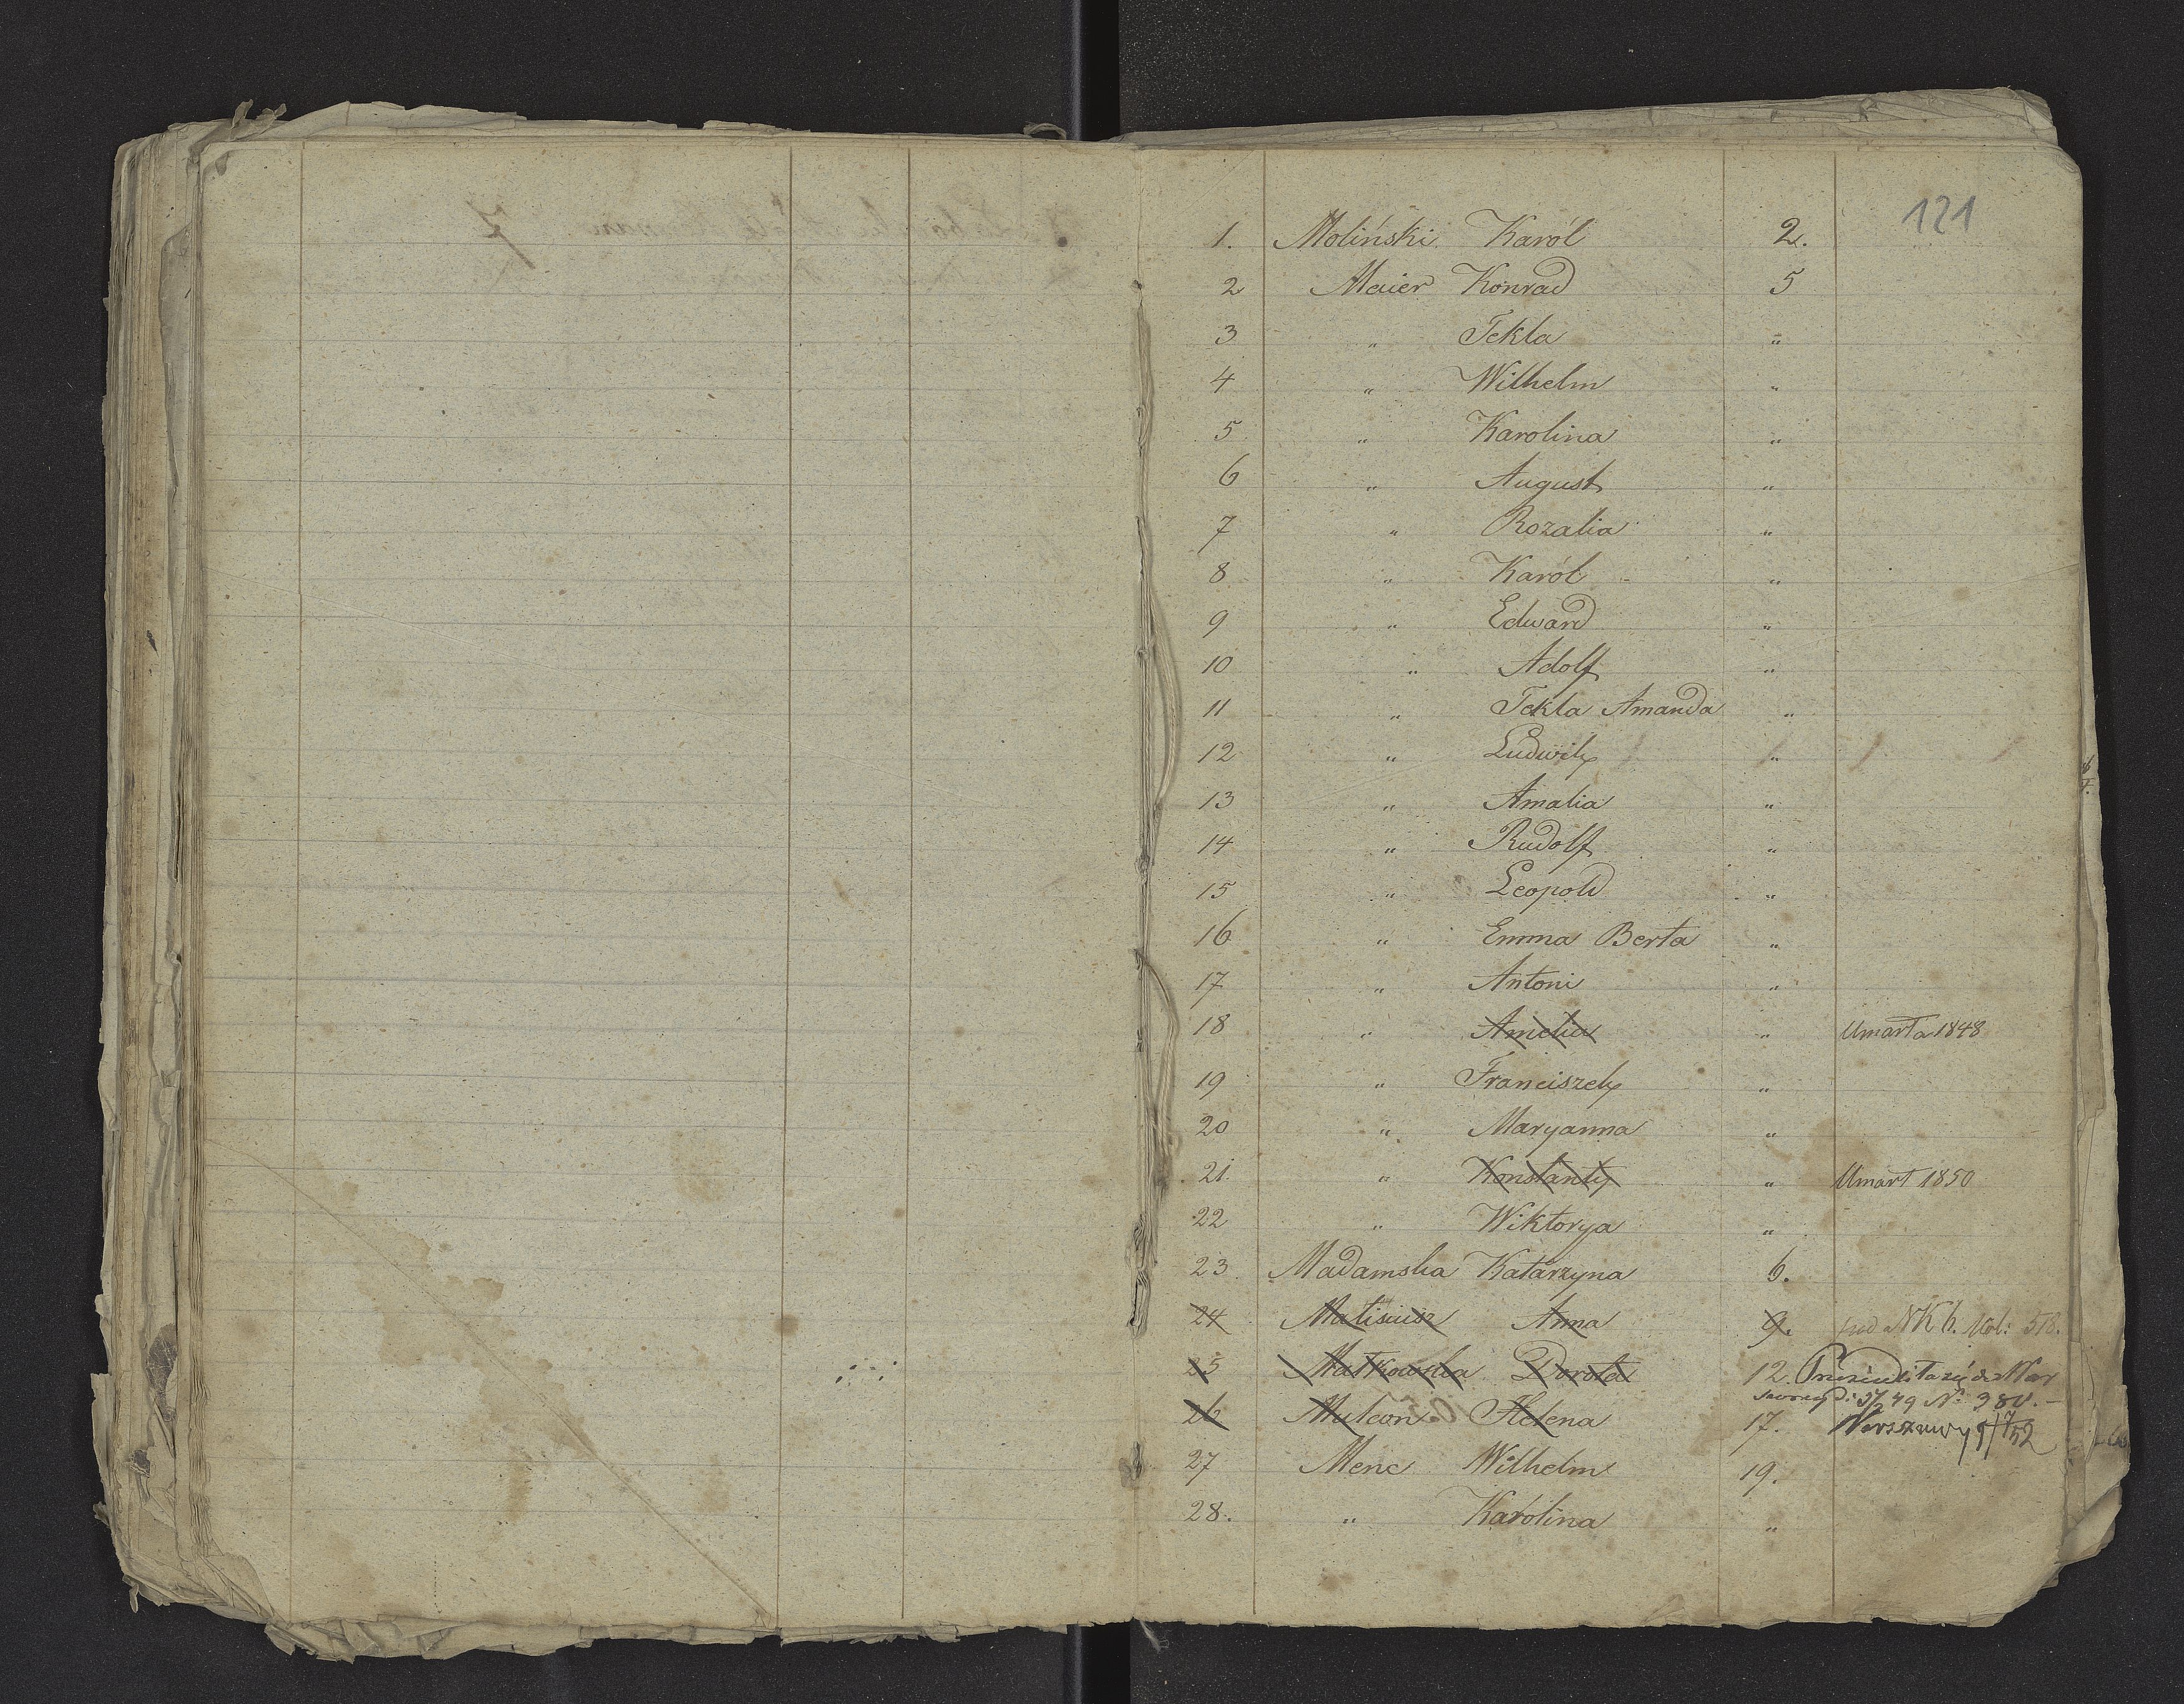 121
1. Moliński Karól 2.
2 Maier Konrad 5
3 " Tekla "
4 " Wilhelm "
5 " Karolina "
6 " August "
7 " Rozalia "
8 " Karól "
9 " Edward "
10 " Adolf "
11 " Tekla Amanda "
12 " Ludwik "
13 " Amalia "
14 " Rudolf "
15 " Leopold "
16 " Emma Berta "
17 " Antoni "
18 " Amelia " Umarła 1848
19 " Franciszek "
20 " Maryanna "
21 " Konstanty " Umarł 1850
22 " Wiktorya "
23 Madamska Katarzyna 6.
24 Anna 9. 518.
25 Matkowska Dorota 12. do War
49 N: 380.
26 Helena 17. Warszawy
27 Menc Wilhelm 19.
28. " Karolina "